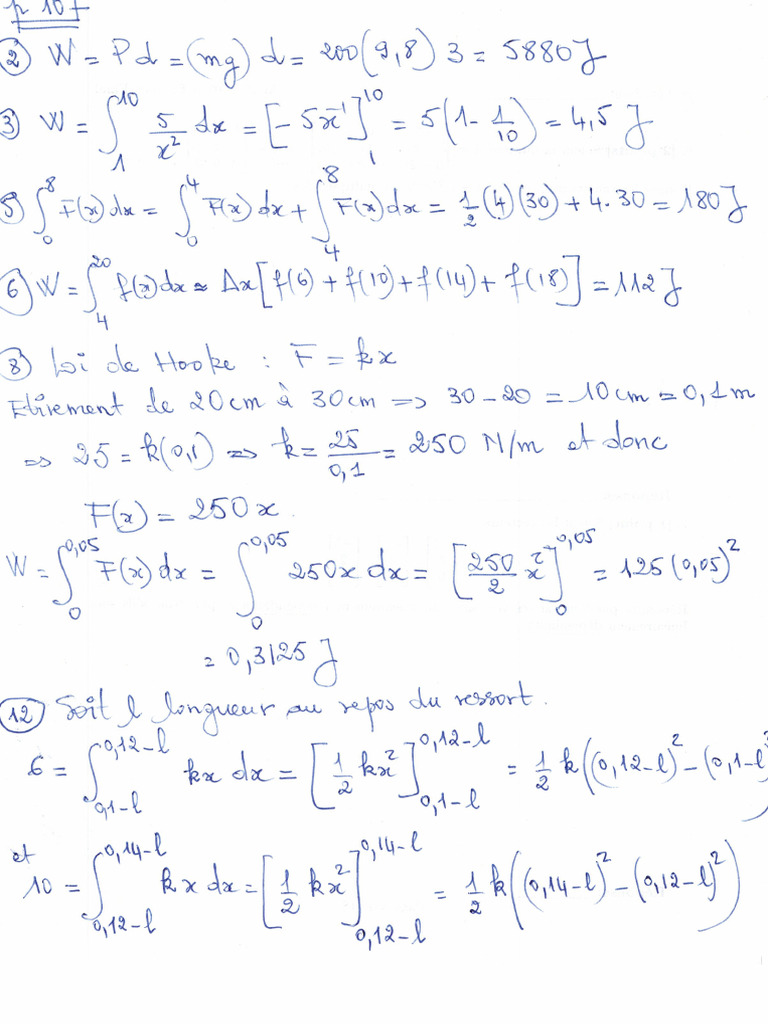 p 107
② W = Pd = (mg) d = 200(9,8) 3 = 5880 J
③ W = ∫₁¹⁰ 5/x² dx = [-5x⁻¹]₁¹⁰ = 5(1 - 1/10) = 4,5 J
5) ∫₀⁸ F(x) dx = ∫₀⁴ F(x) dx + ∫₄⁸ F(x) dx = 1/2 (4)(30) + 4.30 = 180 J
⑥ W = ∫₄²⁰ f(x) dx ≈ Δx [f(6) + f(10) + f(14) + f(18)] = 112 J
⑧ Loi de Hooke : F = kx
Etirement de 20 cm à 30 cm ⇒ 30 - 20 = 10 cm = 0,1 m
⇒ 25 = k(0,1) ⇒ k = 25/0,1 = 250 N/m et donc
F(x) = 250 x.
W = ∫₀^0,05 F(x) dx = ∫₀^0,05 250x dx = [250/2 x²]₀^0,05 = 125 (0,05)²
= 0,3125 J
⑫ Soit l longueur au repos du ressort.
6 = ∫_{0,1-l}^{0,12-l} kx dx = [1/2 kx²]_{0,1-l}^{0,12-l} = 1/2 k((0,12-l)² - (0,1-l)²
et
10 = ∫_{0,12-l}^{0,14-l} kx dx = [1/2 kx²]_{0,12-l}^{0,14-l} = 1/2 k((0,14-l)² - (0,12-l)²)